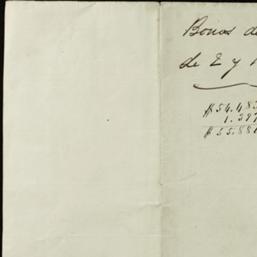 Bonos de
de E y
$54.483
1.397
$55.881